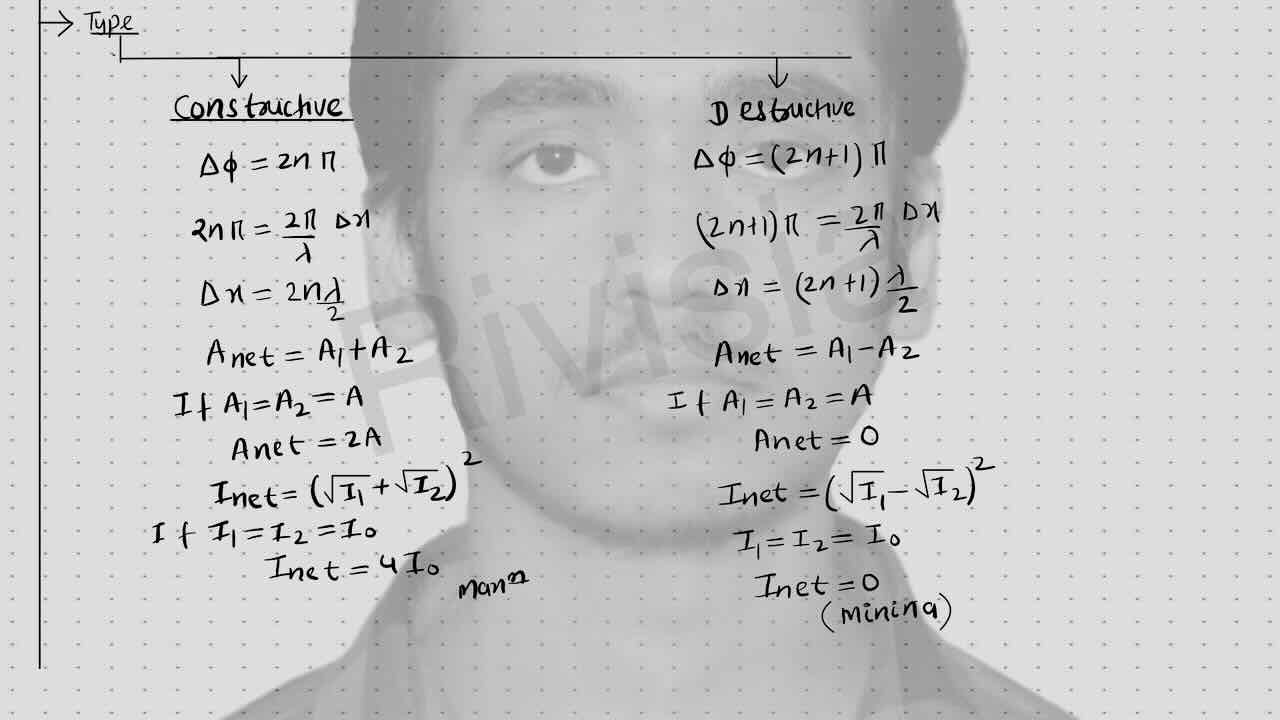 → Type
Constructive
Δφ = 2nπ
2nπ = 2π/λ Δx
Δx = 2nλ/2
Anet = A₁+A₂
If A₁=A₂=A
Anet = 2A
Inet = (√I₁+√I₂)²
If I₁=I₂=I₀
Inet = 4I₀
Destructive
Δφ = (2n+1)π
(2n+1)π = 2π/λ Δx
Δx = (2n+1)λ/2
Anet = A₁-A₂
If A₁=A₂=A
Anet = 0
Inet = (√I₁-√I₂)²
I₁=I₂=I₀
Inet = 0
(minina)
Rivisia